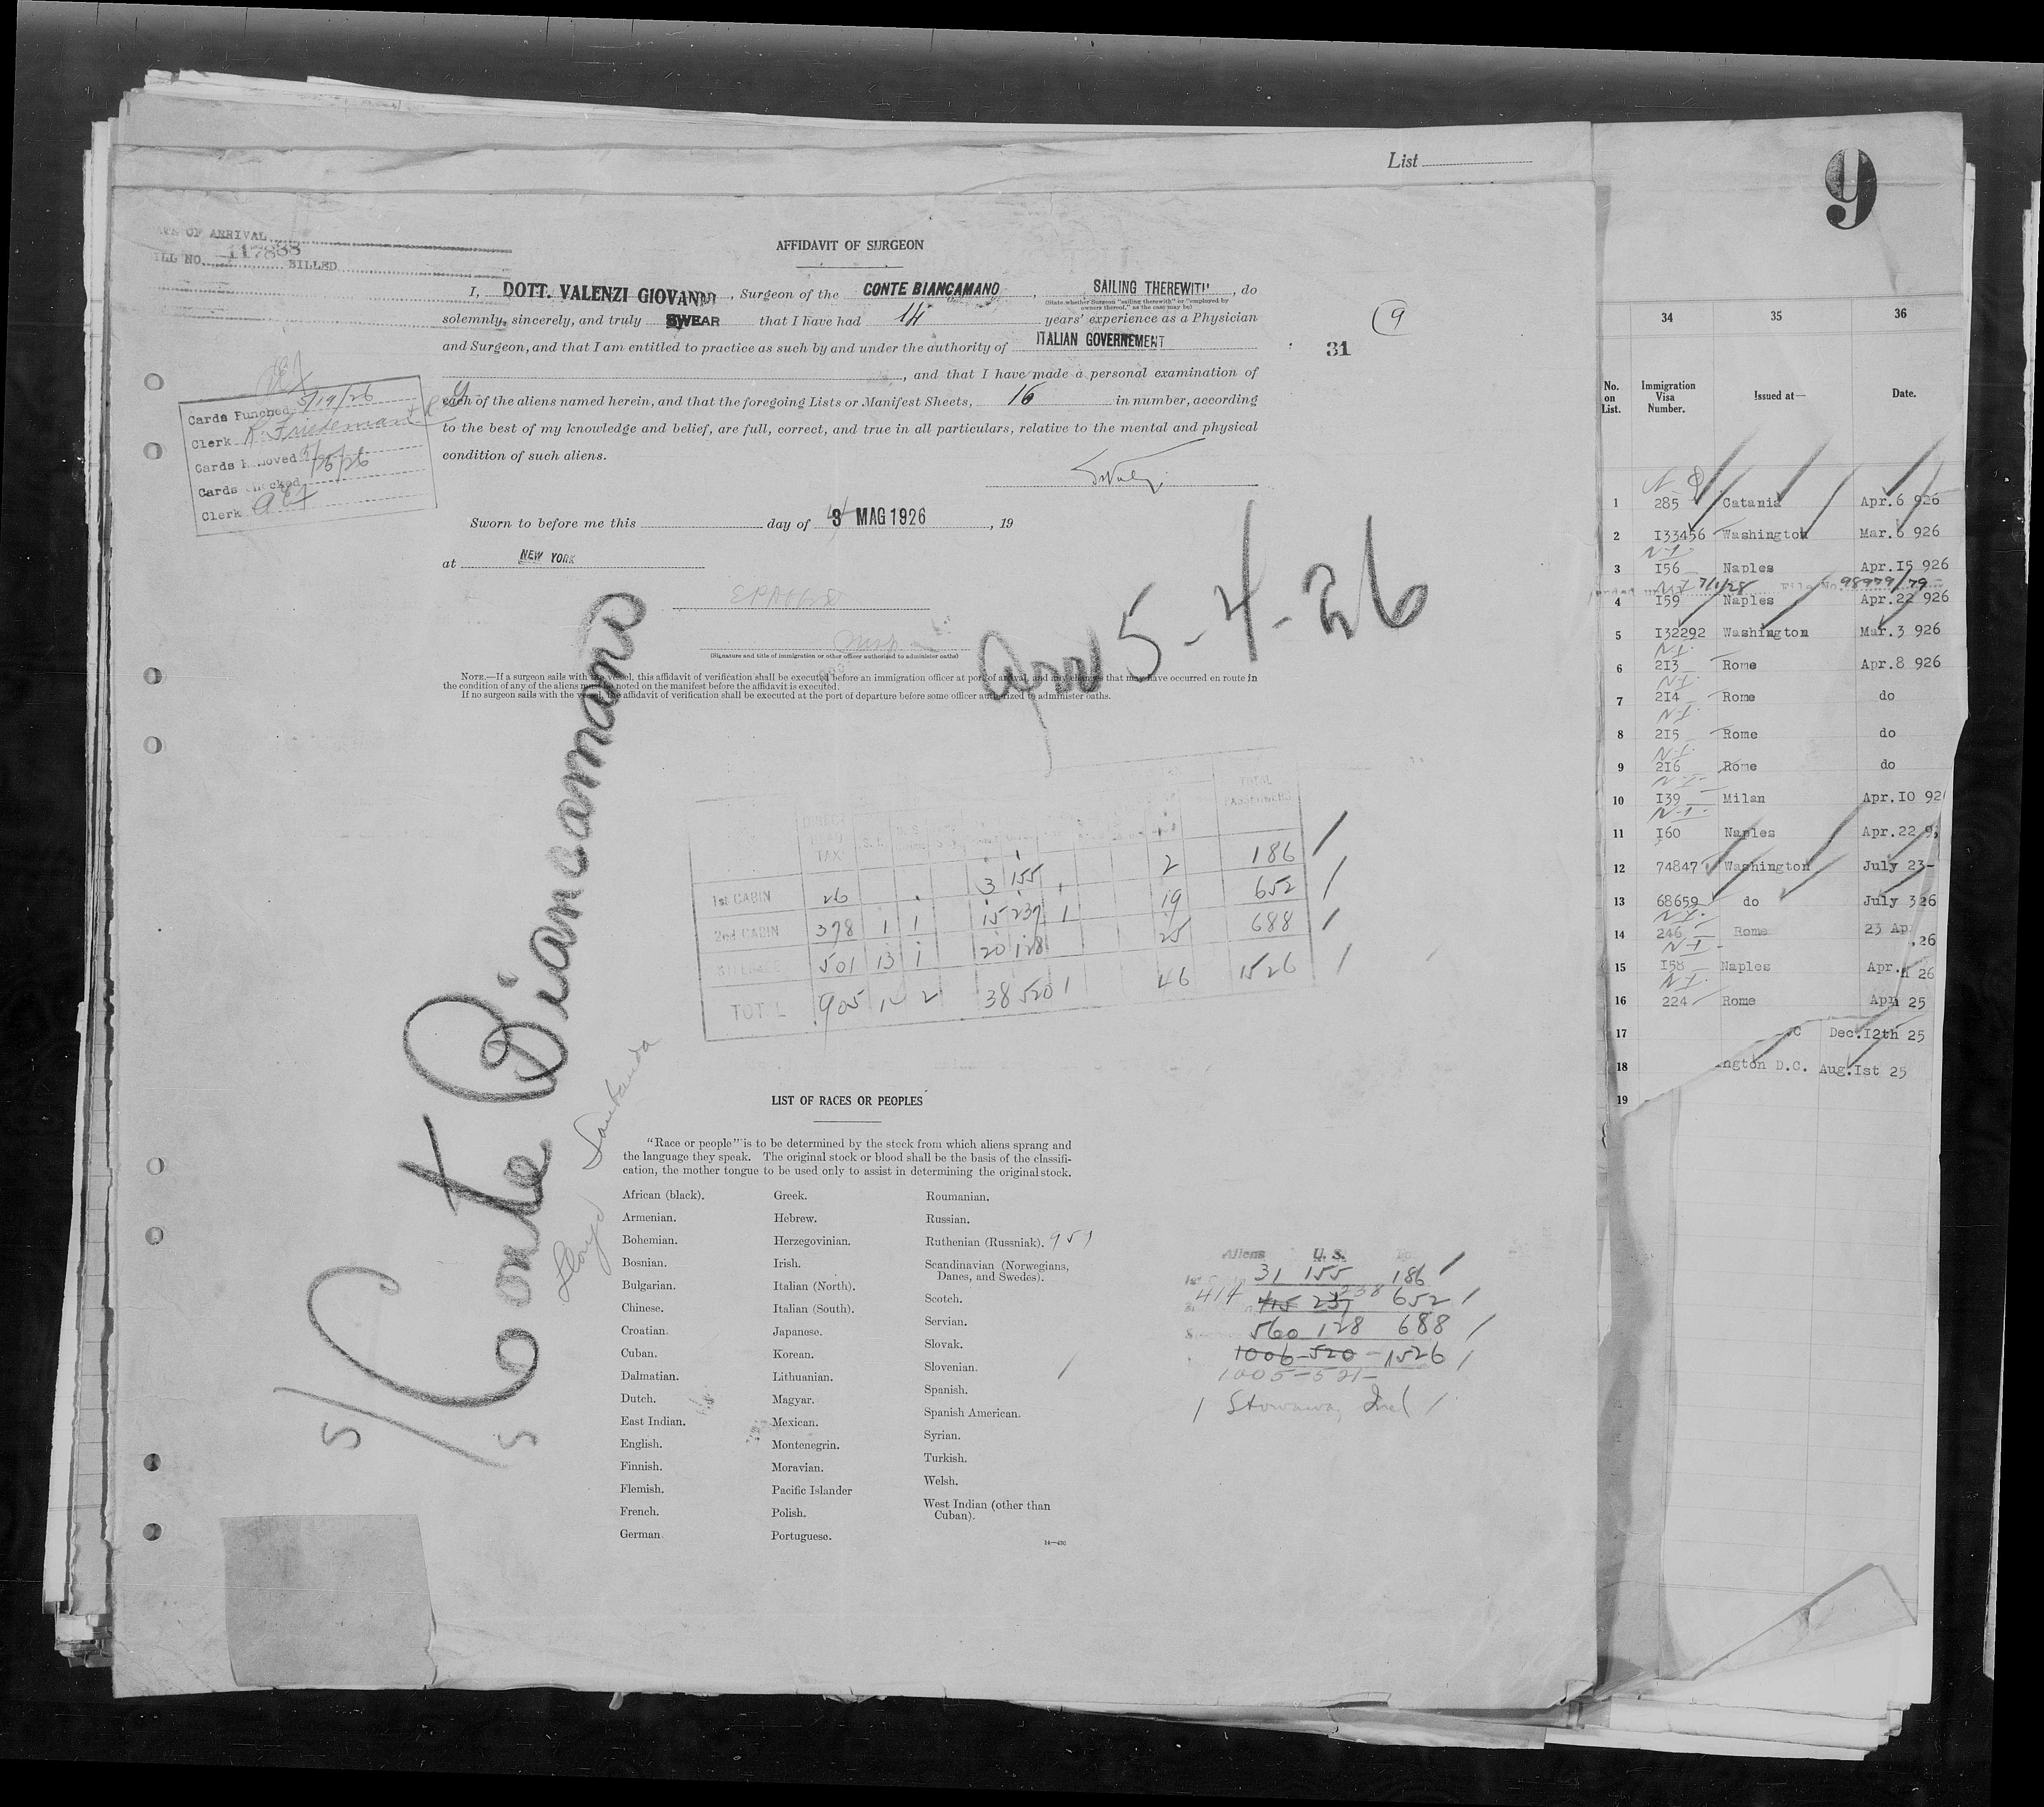 List
9
DATE OF ARRIVAL
BILL NO. 117888 BILLED
AFFIDAVIT OF SURGEON
I, DOTT. VALENZI GIOVANNI, Surgeon of the CONTE BIANCAMANO, SAILING THEREWITH, do
(State whether Surgeon "sailing therewith" or "employed by owners thereof," as the case may be)
solemnly, sincerely, and truly SWEAR that I have had 14 years' experience as a Physician
and Surgeon, and that I am entitled to practice as such by and under the authority of ITALIAN GOVERNEMENT
, and that I have made a personal examination of
each of the aliens named herein, and that the foregoing Lists or Manifest Sheets, 16 in number, according
to the best of my knowledge and belief, are full, correct, and true in all particulars, relative to the mental and physical
condition of such aliens.
9
31
Cards Punched 5/19/26
Clerk R. Friedeman
Cards Removed
Cards Checked
Clerk
Sworn to before me this day of MAG 1926, 19
at NEW YORK
Insp
(Signature and title of immigration or other officer authorized to administer oaths)
NOTE.—If a surgeon sails with the vessel, this affidavit of verification shall be executed before an immigration officer at port of arrival, and any changes that may have occurred en route in
the condition of any of the aliens must be noted on the manifest before the affidavit is executed.
If no surgeon sails with the vessel, the affidavit of verification shall be executed at the port of departure before some officer authorized to administer oaths.
arr 5-4-26
S/S Conte Biancamano
Lloyd Sabaudo
DIRECT HEAD TAX TOTAL PASSENGERS
1st CABIN 26 3 155 2 186
2nd CABIN 378 1 1 15 237 1 19 652
STEERAGE 501 13 1 20 128 25 688
TOTAL 905 14 2 38 520 1 46 1526
LIST OF RACES OR PEOPLES
"Race or people" is to be determined by the stock from which aliens sprang and
the language they speak. The original stock or blood shall be the basis of the classifi-
cation, the mother tongue to be used only to assist in determining the original stock.
African (black).
Armenian.
Bohemian.
Bosnian.
Bulgarian.
Chinese.
Croatian.
Cuban.
Dalmatian.
Dutch.
East Indian.
English.
Finnish.
Flemish.
French.
German.
Greek.
Hebrew.
Herzegovinian.
Irish.
Italian (North).
Italian (South).
Japanese.
Korean.
Lithuanian.
Magyar.
Mexican.
Montenegrin.
Moravian.
Pacific Islander
Polish.
Portuguese.
Roumanian.
Russian.
Ruthenian (Russniak). 959
Scandinavian (Norwegians,
Danes, and Swedes).
Scotch.
Servian.
Slovak.
Slovenian.
Spanish.
Spanish American.
Syrian.
Turkish.
Welsh.
West Indian (other than
Cuban).
14—430
Aliens U. S.
31 155 186
414 415 237 238 652
560 128 688
1006-520-1526
1005-521-
1 Stowaway Incl
34 35 36
No. on List. Immigration Visa Number. Issued at— Date.
1 285 Catania Apr.6 926
2 I33456 Washington Mar.6 926
N-I
3 I56 Naples Apr.I5 926
7/1/28 File No. 98979/79
4 I59 Naples Apr.22 926
5 I32292 Washington Mar.3 926
N-I
6 213 Rome Apr.8 926
N-I
7 214 Rome do
N-I
8 215 Rome do
N-I
9 216 Rome do
N-I
10 I39 Milan Apr.IO 92
N-I
11 I60 Naples Apr.22 9
12 74847 Washington July 23-
13 68659 do July 326
N-I
14 246 Rome 23 Ap .26
N-I
15 I58 Naples Apr. 26
N-I
16 224 Rome Apr 25
17 C Dec.I2th 25
18 ngton D.C. Aug.Ist 25
19